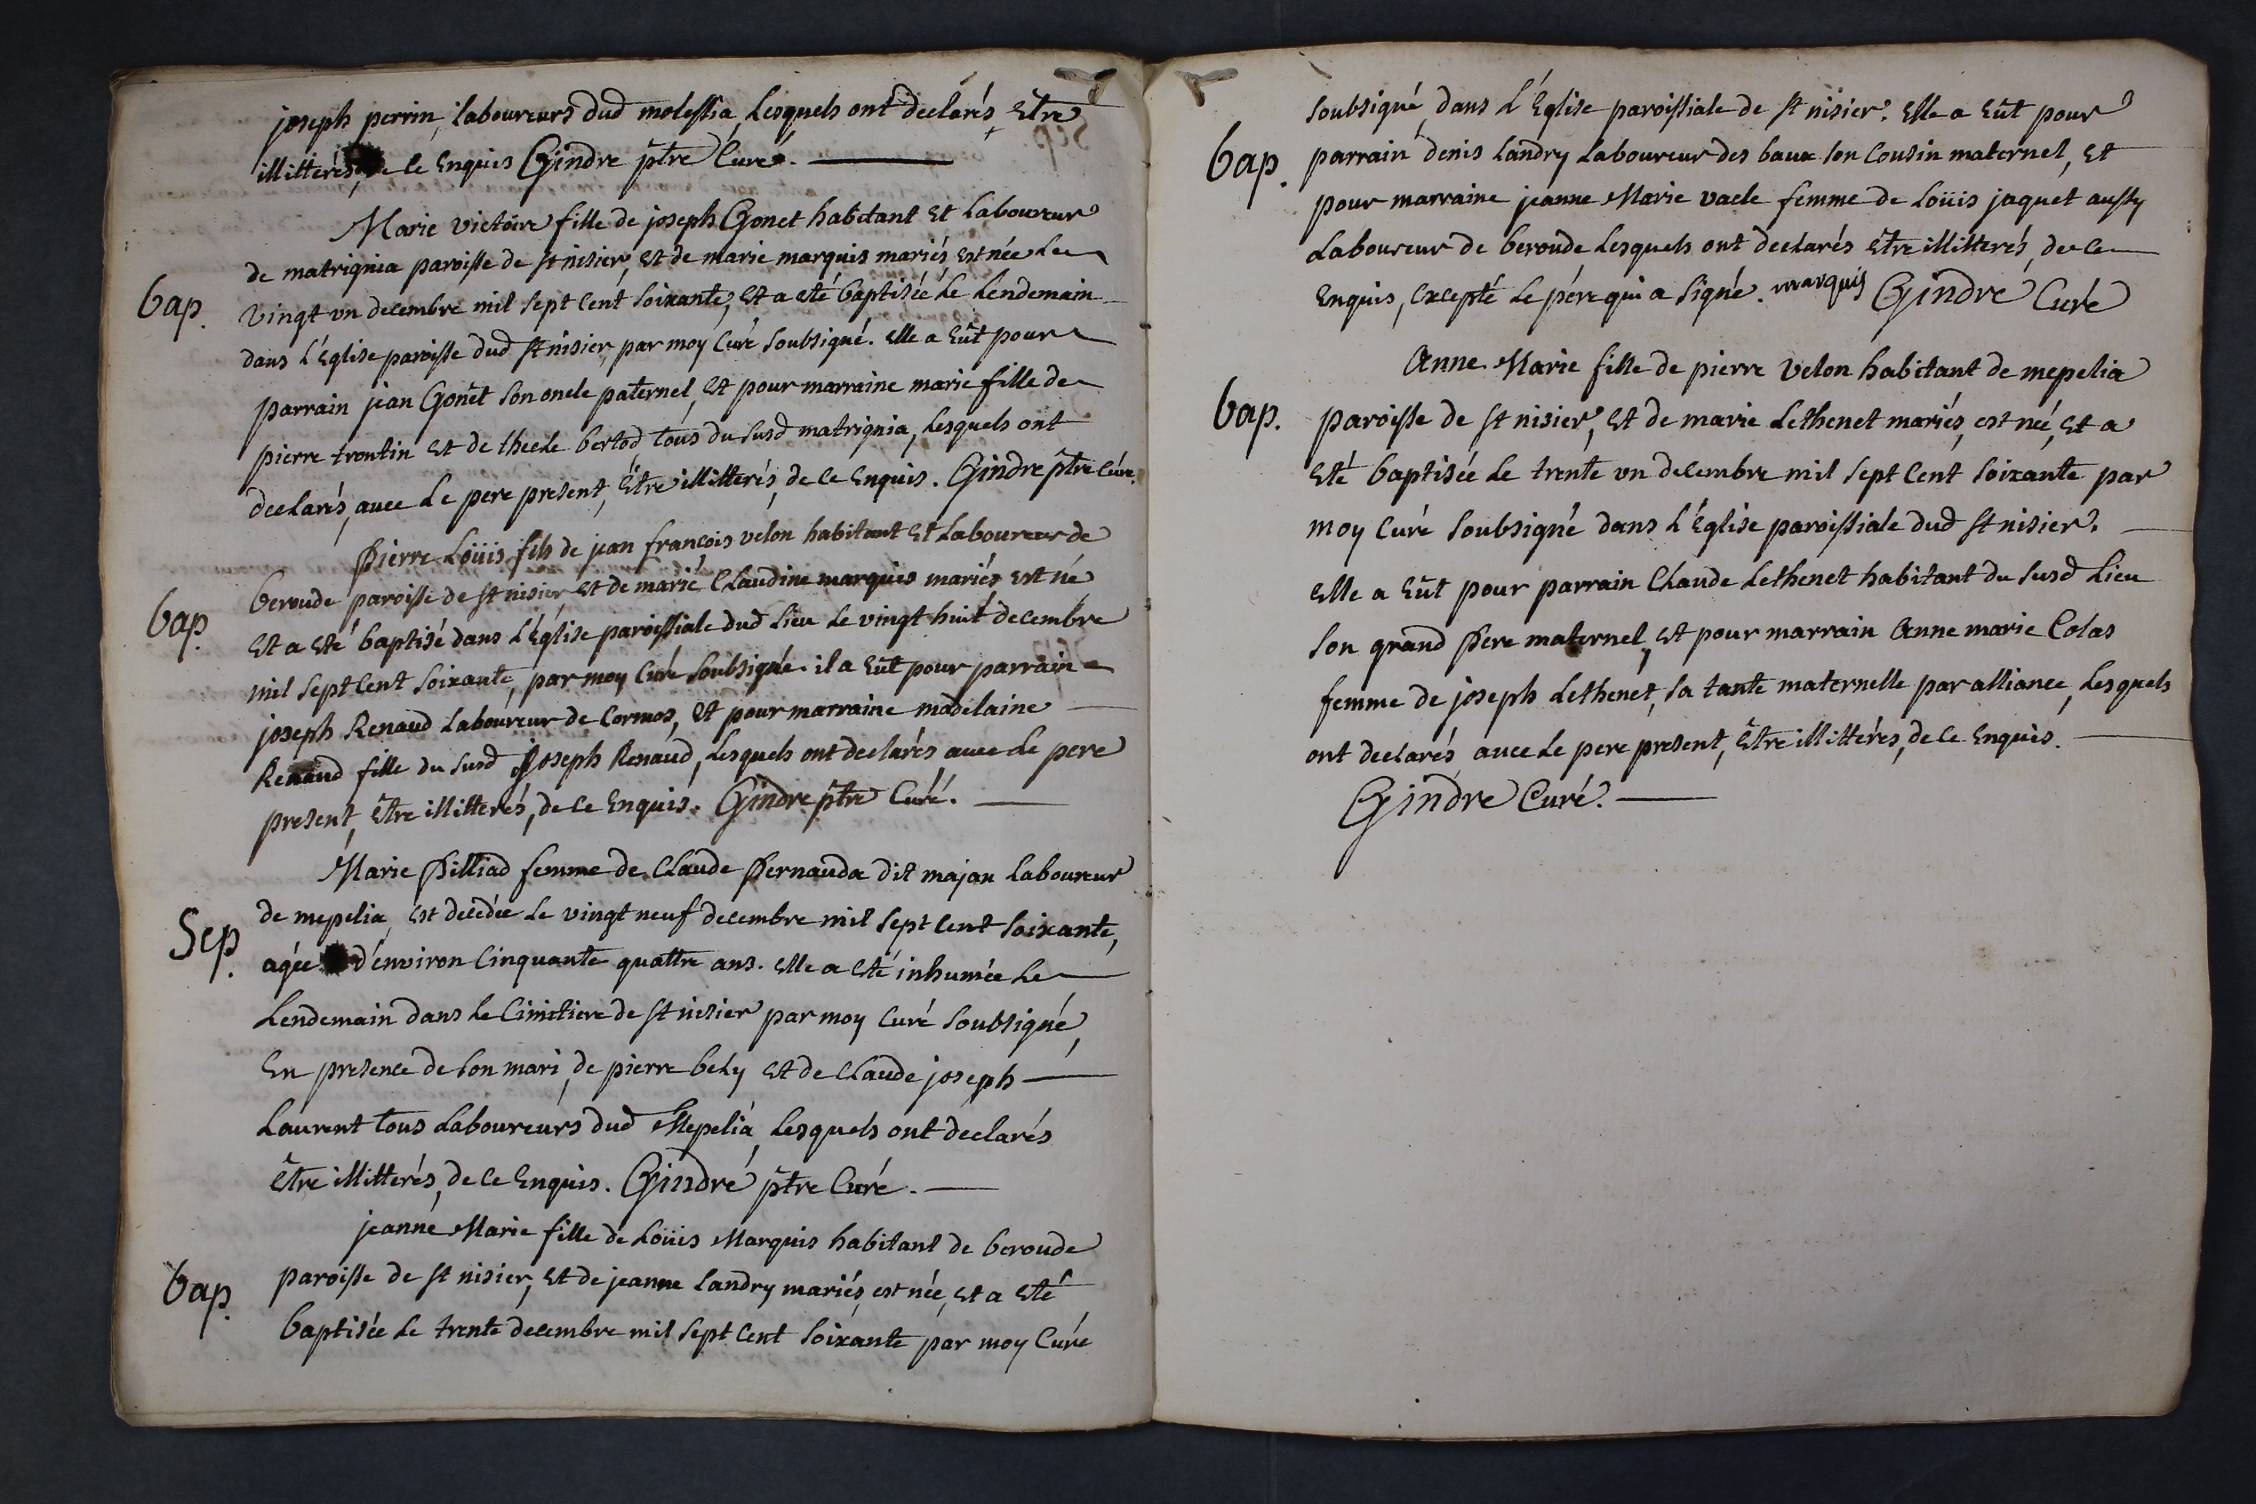 joseph perrin, laboureurs dud molessia, Lesquels ont declarés Etre
illitterés, de ce Enquis Gindre ptre Curé.
Marie victoire fille de joseph Gonet habitant Et Laboureur
de matrignia paroisse de st nisier, Et de marie marquis mariés Est née Le
bap.
vingt un decembre mil sept cent soixante, Et a eté baptisée Le Lendemain
dans L'Eglise paroisse dud st nisier, par moy Curé soubsigné. Elle a Eût pour
parrain jean Gonet son oncle paternel, Et pour marraine marie fille de
pierre trontin Et de thecle bertod, tous du susd matrignia, Lesquels ont
declarés, avec Le pere present, Être illitterés, de ce Enquis. Gindre ptre Curé.
Pierre Loüis fils de jean francois velon habitant Et Laboureur de
beroude paroisse de st nisier, Et de marie Claudine marquis mariés Est né
bap.
Et a Eté baptisé dans L'Église paroissiale dud Lieu Le vingt huit decembre
mil sept cent soixante, par moy Curé soubsigné. il a Eût pour parrain
joseph Renaud Laboureur de Cormos, Et pour marraine madelaine
Renaud fille du susd joseph Renaud, Lesquels ont declarés avec Le pere
present, Etre illitterés, de ce Enquis. Gindre ptre Curé.
Marie Pilliad femme de Claude Pernauda dit majan Laboureur
Sep.
de mepelia, Est decedée Le vingt neuf decembre mil sept cent soixante,
agée d'environ Cinquante quattre ans. Elle a Eté inhumée Le
Lendemain dans Le Cimitiere de st nisier par moy Curé soubsigné,
En presence de son mari, de pierre bely Et de Claude joseph
Laurent tous Laboureurs dud Mepelia, Lesquels ont declarés
Être illitterés, de ce Enquis. Gindre ptre Curé.
jeanne Marie fille de Loüis Marquis habitant de beroude
bap.
paroisse de st nisier, Et de jeanne Landry mariés, est née, Et a Eté
baptisée Le trente decembre mil sept cent soixante par moy Curé
soubsigné, dans L'Eglise paroissiale de st nisier. Elle a Eût pour
bap.
parrain denis Landry Laboureur des baux son Cousin maternel, Et
pour marraine jeanne Marie vacle femme de Loüis jaquet aussy
Laboureur de beroude Lesquels ont declarés Être illitterés, de ce
Enquis, Excepté Le pére qui a signé. marquis Gindre Curé
Anne Marie fille de pierre velon habitant de mepelia
bap.
paroisse de st nisier, Et de marie Lethenet mariés, est née, Et a
Eté baptisée Le trente un decembre mil sept cent soixante par
moy Curé soubsigné dans L'Eglise paroissiale dud st nisier.
Elle a Eût pour parrain Claude Lethenet habitant du susd Lieu
son grand Pere maternel, Et pour marrain Anne marie Colas
femme de joseph Lethenet, sa tante maternelle par alliance, Lesquels
ont declarés avec Le pere present, Être illitterés, de ce Enquis.
Gindre Curé.